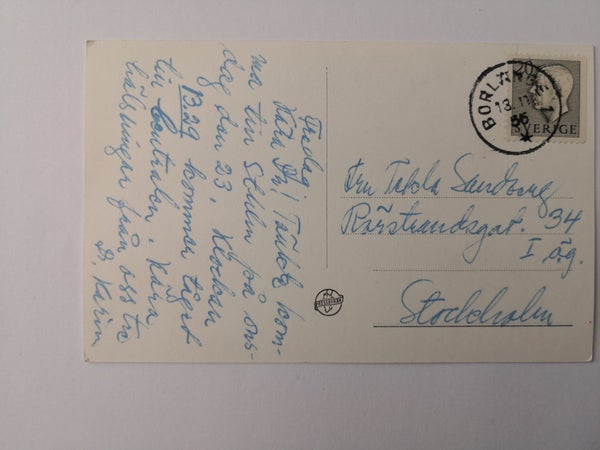 Fredag.
Kära Du! Tänkte kom-
ma till Sthlm på ons-
dag den 23. Klockan
13.29 kommer tåget
till Centralen. Kära
hälsningar från oss
D. Karin
BORLÄNGE 1
13. 11
56
20
SVERIGE
Fru Tekla Sandberg
Rörstrandsgat. 34
I ög.
Stockholm